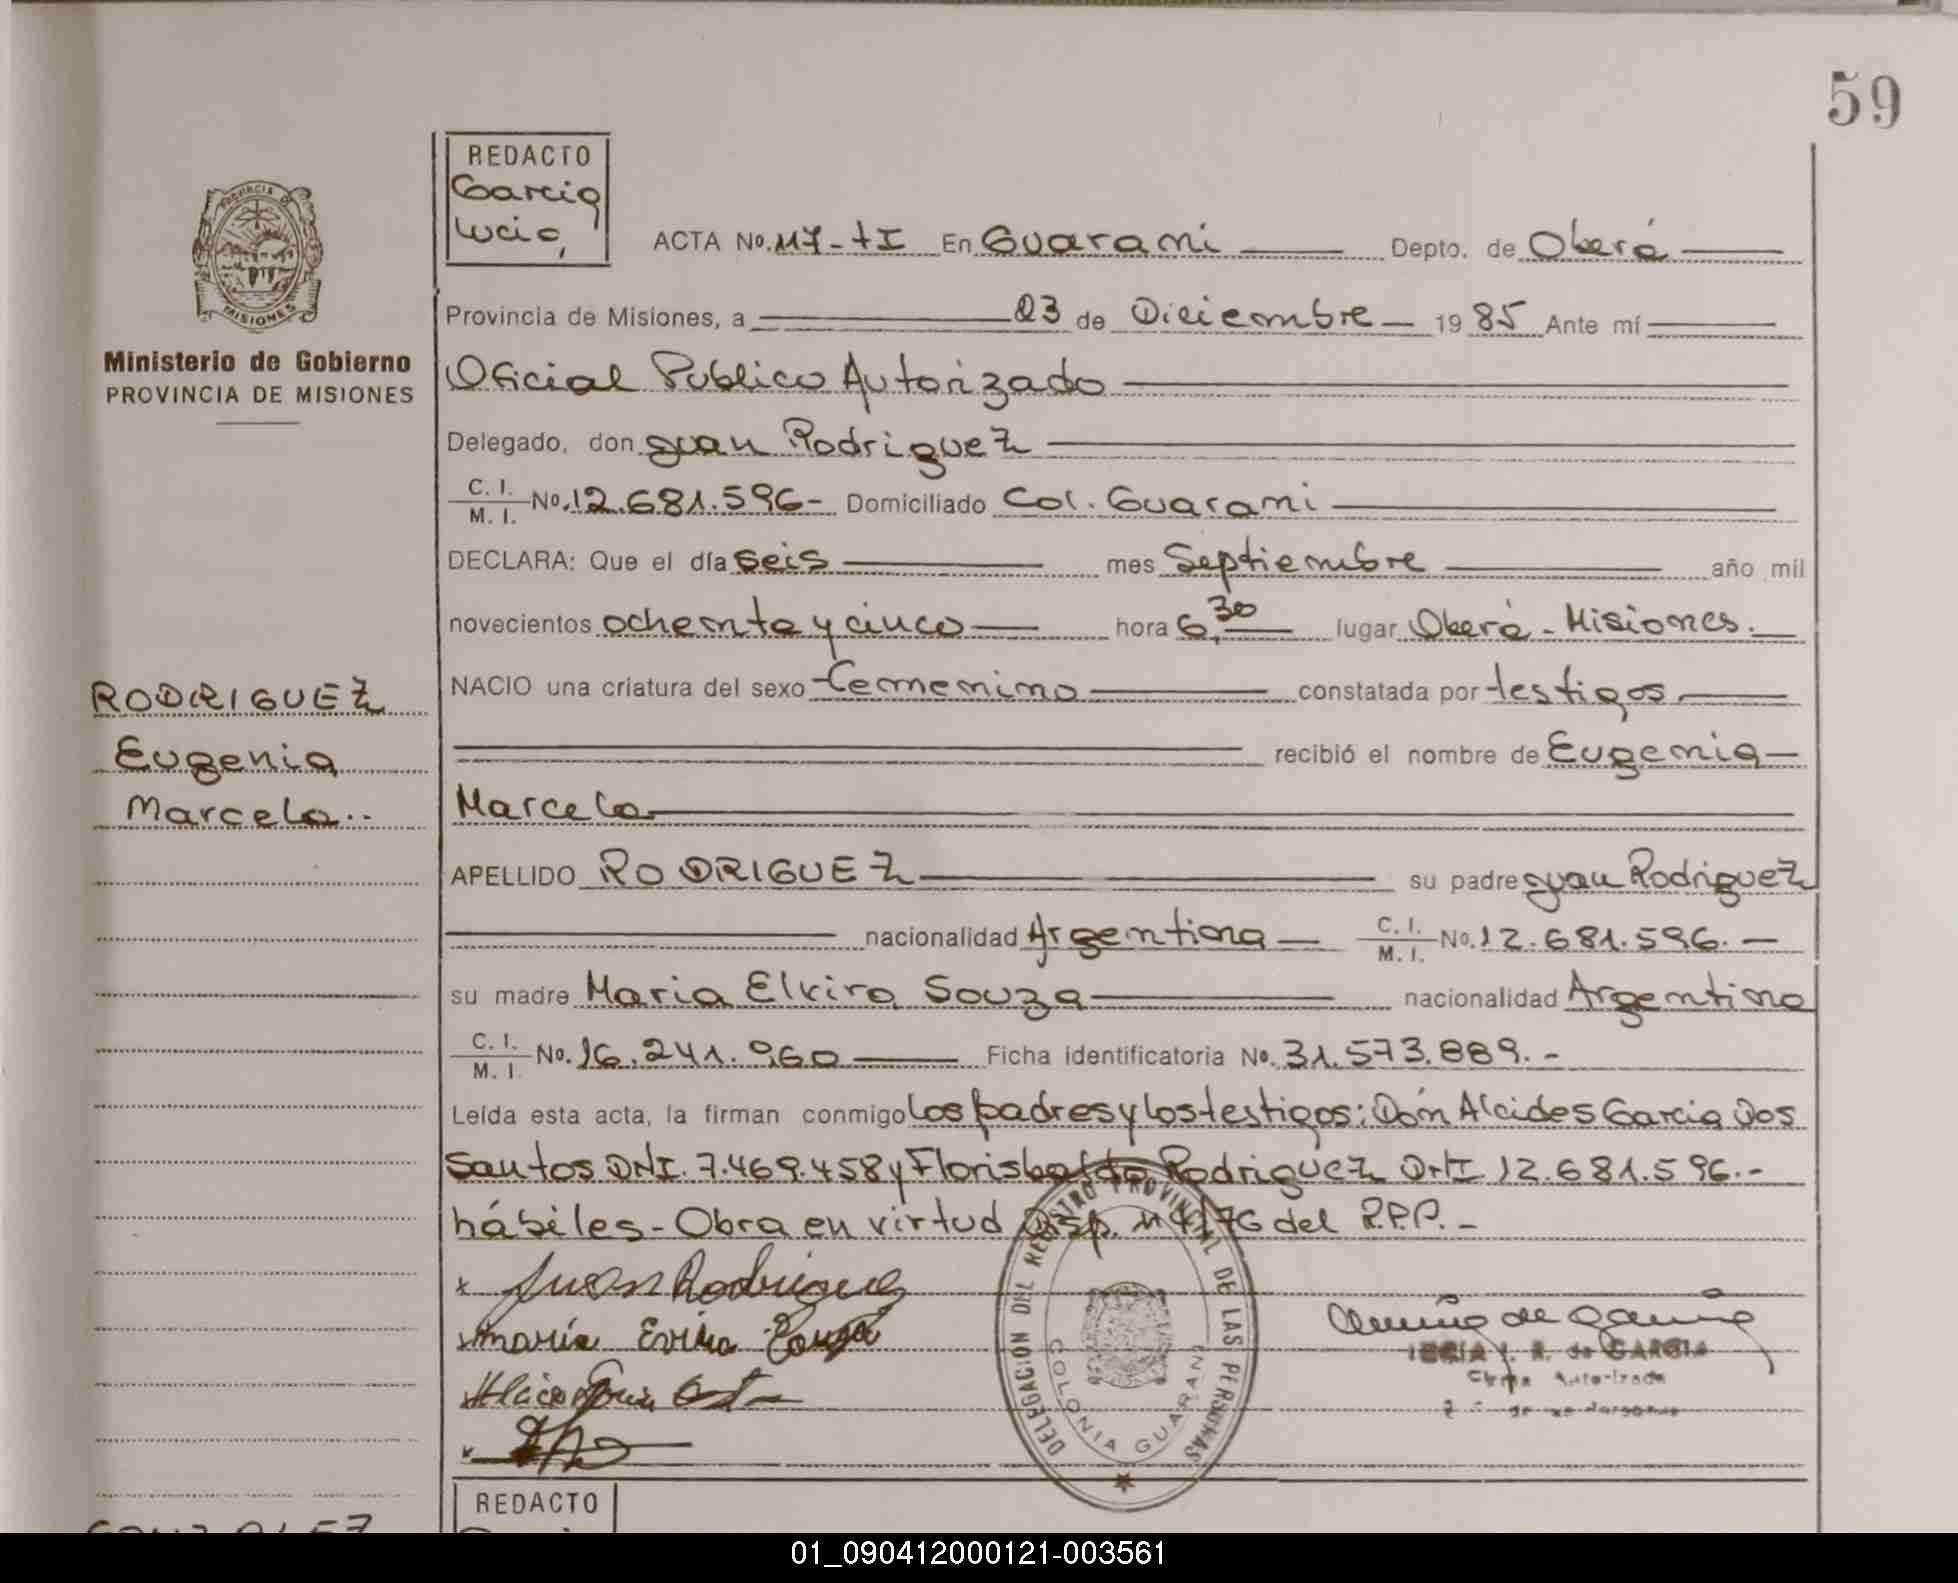 59
PROVINCIA DE
MISIONES
Ministerio de Gobierno
PROVINCIA DE MISIONES
RODRIGUEZ
Eugenia
Marcela..
REDACTO
Garcia
Lucia,
ACTA No. 117-TI En Guarani Depto. de Oberá
Provincia de Misiones, a 23 de Diciembre 1985 Ante mí
Oficial Publico Autorizado
Delegado, don Juan Rodriguez
C. I. / M. I. No. 12.681.596- Domiciliado Col. Guarani
DECLARA: Que el día seis mes Septiembre año mil
novecientos ochenta y cinco hora 6,30 lugar Oberá-Misiones.
NACIO una criatura del sexo femenino constatada por testigos
recibió el nombre de Eugenia
Marcela
APELLIDO RODRIGUEZ su padre Juan Rodriguez
nacionalidad Argentina C. I. / M. I. No. 12.681.596.-
su madre Maria Elvira Souza nacionalidad Argentina
C. I. / M. I. No. 16.241.960 Ficha identificatoria No. 31.573.889.-
Leída esta acta, la firman conmigo los padres y los testigos: Don Alcides Garcia Dos
Santos DNI. 7.469.458 y Florisbaldo Rodriguez DNI 12.681.596.-
hábiles-Obra en virtud Disp. del R.P.P.-
x Juan Rodriguez
x maría
DELEGACION DEL REGISTRO PROVINCIAL DE LAS PERSONAS
COLONIA GUARANI
de GARCIA
REDACTO
01_090412000121-003561